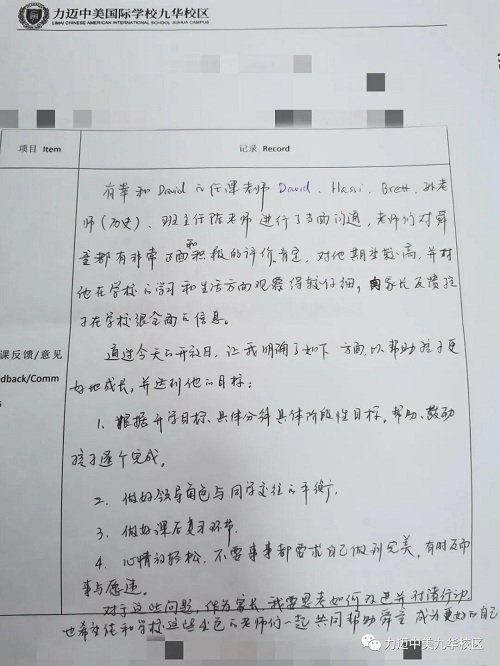 力迈中美国际学校九华校区
LIMAI CHINESE AMERICAN INTERNATIONAL SCHOOL JIUHUA CAMPUS
项目 Item
记录 Record
有幸和David的任课老师 David、Hassi、Brett、孙老
师(历史)、班主任陈老师进行了当面沟通,老师们对舜
主都有非常正面和积极的评价肯定,对他期望较高,并对
他在学校的学习和生活方面观察得较仔细,向家长反馈孩
子在学校很全面的信息。
课反馈/意见
dback/Comm
s
通过今天的开放日,让我明确了如下方面,以帮助孩子更
好地成长,并达到他的目标:
1、根据升学目标、具体分科具体阶段性目标,帮助、鼓励
孩子逐个完成。
2、做好领导角色与同学交往的平衡。
3、做好课后复习环节。
4、心情放轻松,不要事事都要求自己做到完美,有时反而
事与愿违。
对于这些问题,作为家长,我要思考如何改进并付诸行动
也希望能和学校这些出色的老师们一起共同帮助舜主成为更好的自己
力迈中美九华校区